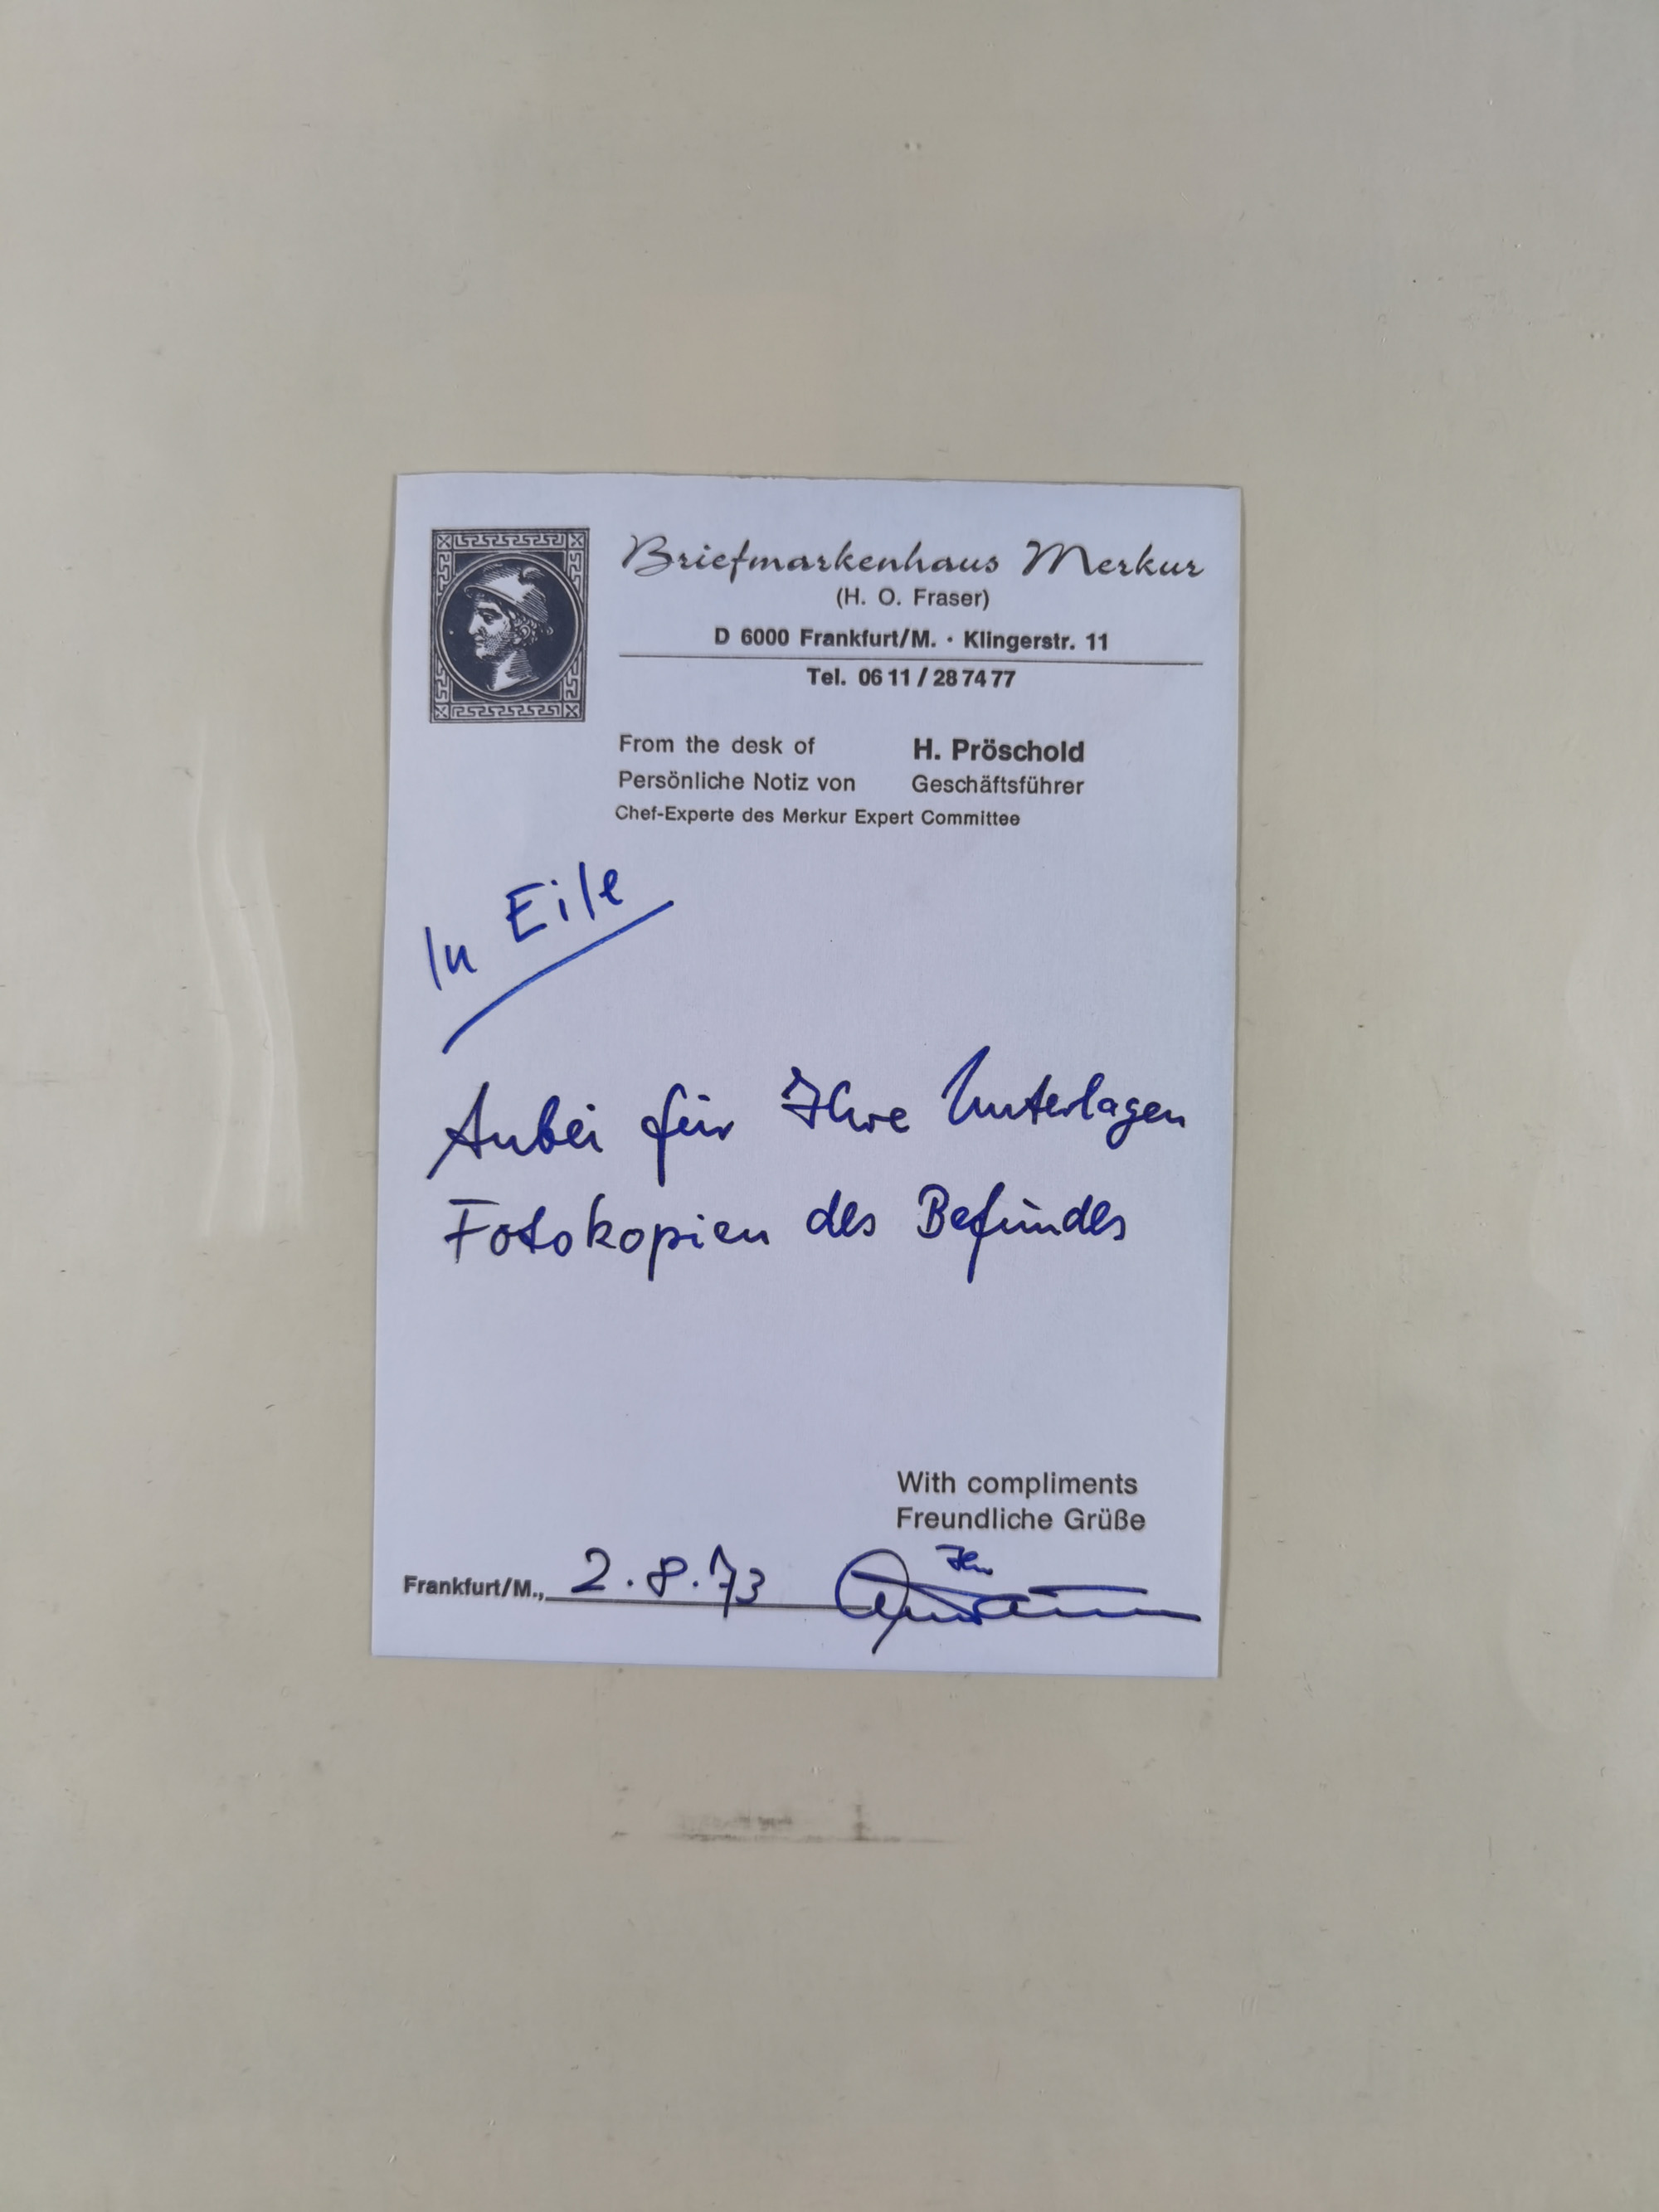 Briefmarkenhaus Merkur
(H. O. Fraser)
D 6000 Frankfurt/M. · Klingerstr. 11
Tel. 06 11 / 28 74 77
From the desk of H. Pröschold
Persönliche Notiz von Geschäftsführer
Chef-Experte des Merkur Expert Committee
In Eile
Anbei für Ihre Unterlagen
Fotokopien des Befundes
With compliments
Freundliche Grüße
Frankfurt/M., 2.8.73